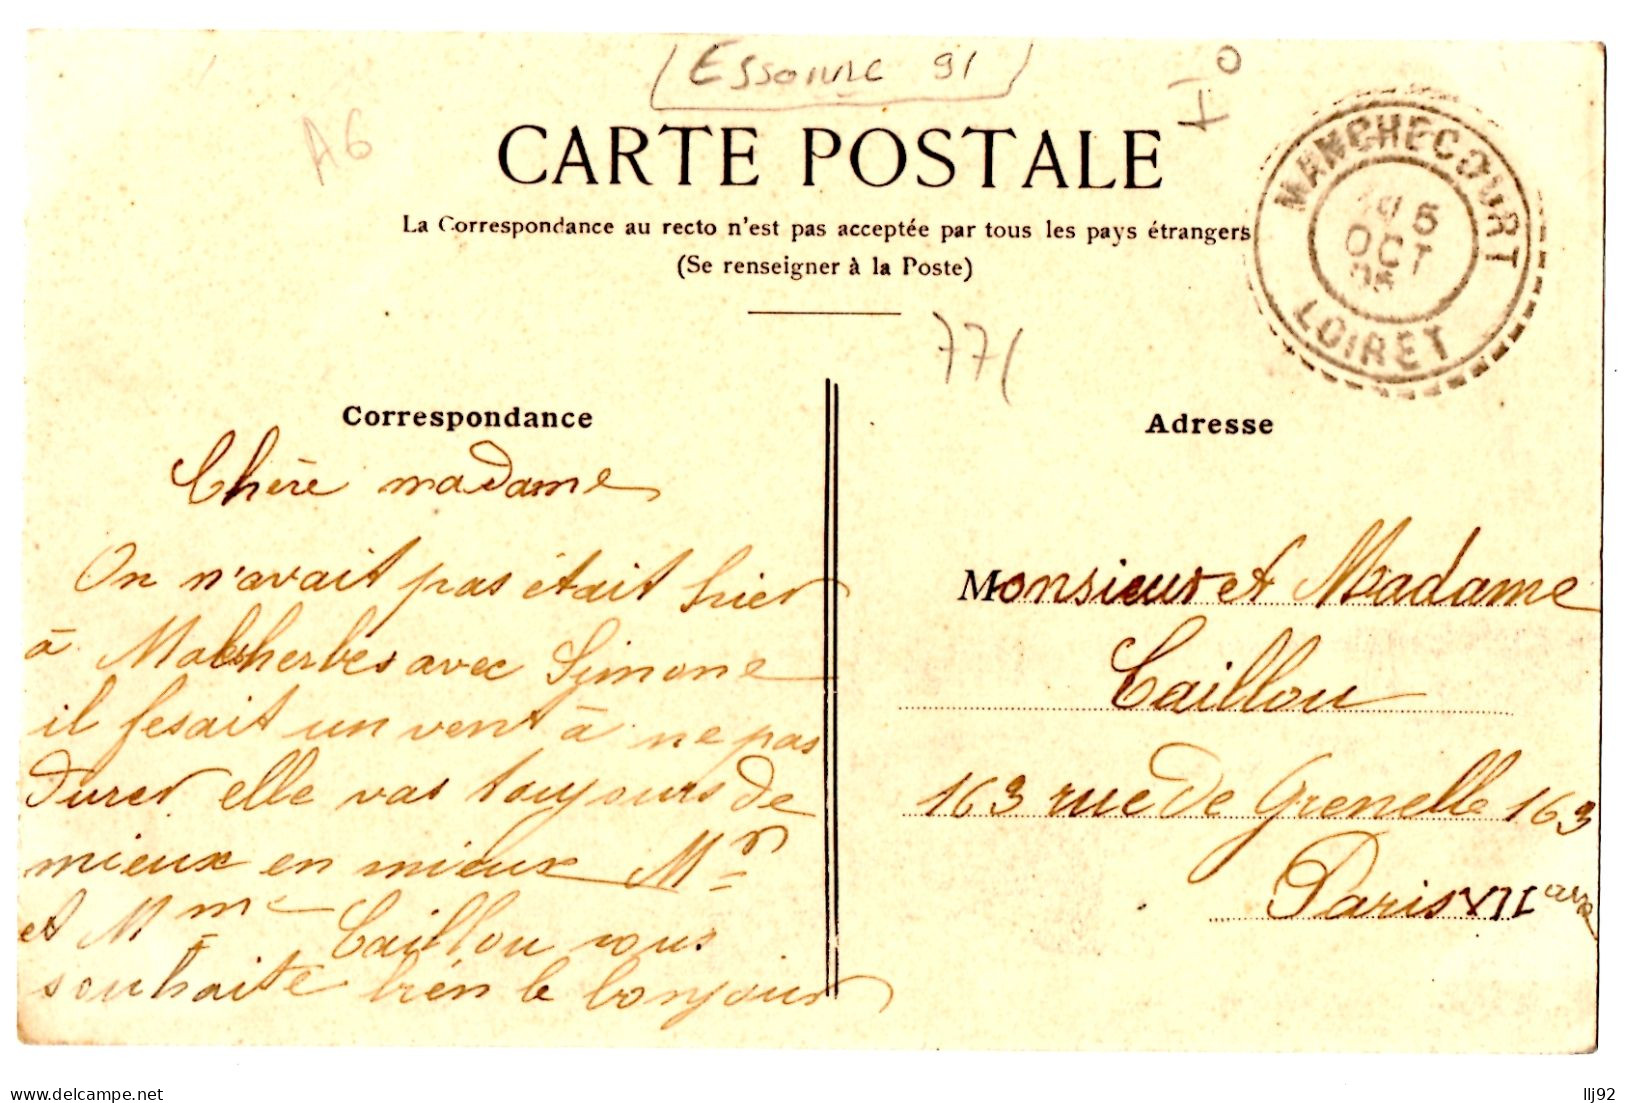 (Essonne 91)
A6
CARTE POSTALE
La Correspondance au recto n'est pas acceptée par tous les pays étrangers
(Se renseigner à la Poste)
MANCHECOURT
5
OCT
05
LOIRET
77(
Correspondance
Chère madame
On n'avait pas était hier
à Malesherbes avec Simone
il fesait un vent à ne pas
durer elle vas toujours de
mieux en mieux Mr
et Mme Caillou vous
souhaite bien le bonjour
Adresse
Monsieur et Madame
Caillou
163 rue de Grenelle 163
Paris VII
llj92